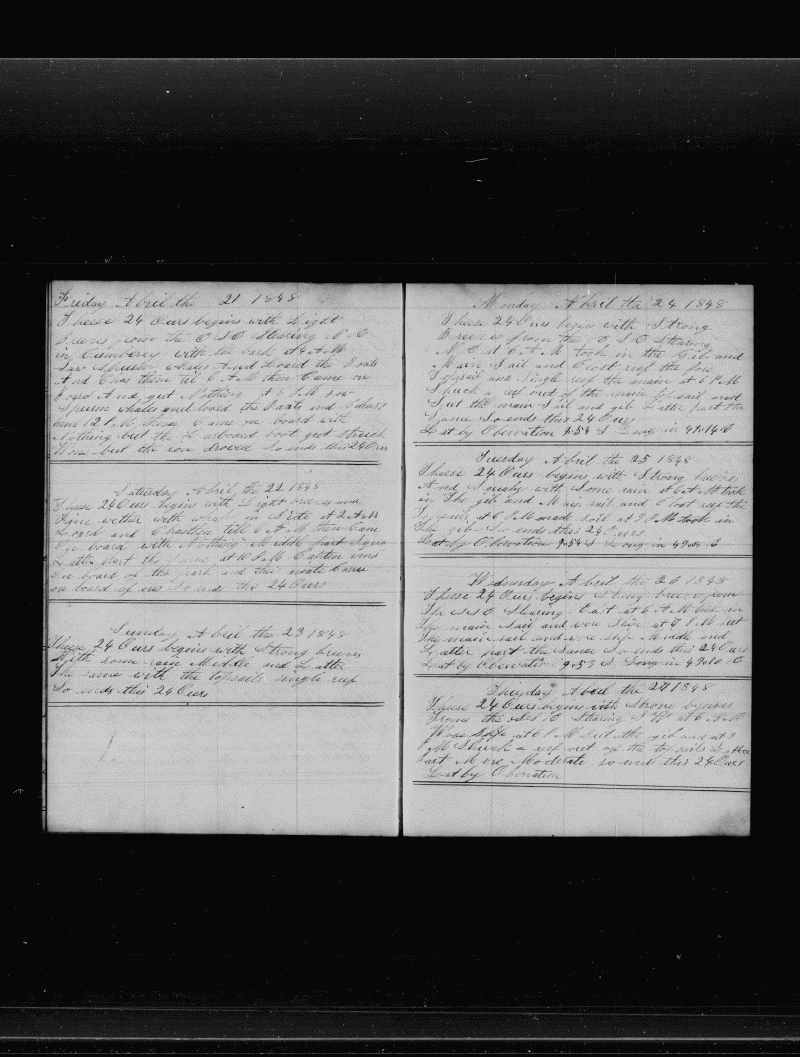 Friday Abril the 21 1848
Theese 24 Ours begins with Light
Breeses from the E S E Stearing N E
in Cumpeny with the bark at 4 A M
Saw Spurm whales And Loard the Boats
And Chas them til 6 A M then Came on
Board And got Nothing at 8 P M saw
Spurm whales and loard the Boats and Chased
them 12 P M these Came on board with
Nothing but the Larboard boat got struck
but the iron drowed So ends this 24 Ours
Saturday Abril the 22 1848
Theese 24 Ours begins with Light breeses and
Fine wether with whales in Site at 2 A M
Loard and Chasten till 6 A M then Came
On board with Nothing Middle part
Latter part the Same at 10 P M Capten
on board of the bark and this mate Came
on board of ours So ends this 24 Ours
Sunday Abril the 23 1848
Theese 24 Ours begins with Strong breeses
With some rain Middle and Latter
The same with the topsails single reef
So ends this 24 Ours
Monday Abril the 24 1848
Theese 24 Ours begin with Strong
Breeses from the E S E Stearing
N E at 6 A M took in the Gib and
Main Sail and Clost reef the fore
Topsail and Single reef the main at 6 P M
Shuck a reef out of the main topsail and
Sut the main Sail and gib Latter part the
Same So ends this 24 Ours
Lat by Obervation 9.54 S Long in 49.14 E
Tuesday Abril the 25 1848
Theese 24 Ours begins with Strong breese
And Squaly with Some rain at 6 A M took
in The gib and Main sail and Clost reef the
Topsails at 6 P M made sail at 9 P M took in
The gib So ends this 24 Ours
Lat by Obervation 9.54 S Long in 49.00 E
Wednesday Abril the 26 1848
Theese 24 Ours begins Strong breese from
The S E Stearing East at 6 A M took in
the main Sail and wore Ship at 6 P M sut
The main sail and wore ship Middle and
Latter part the Same So ends this 24 Ours
Lat by Obervation 9.53 S Long in 49.10 E
Thursday Abril the 27 1848
Theese 24 Ours begins with Strong breeses
From the S E Stearing S W at 6 A M
Wore Ship at 6 P M sut the gib and at 9
P M Shuck a reef out of the topsails Latter
Part More Moderate so ends this 24 Ours
Lat by Obervation